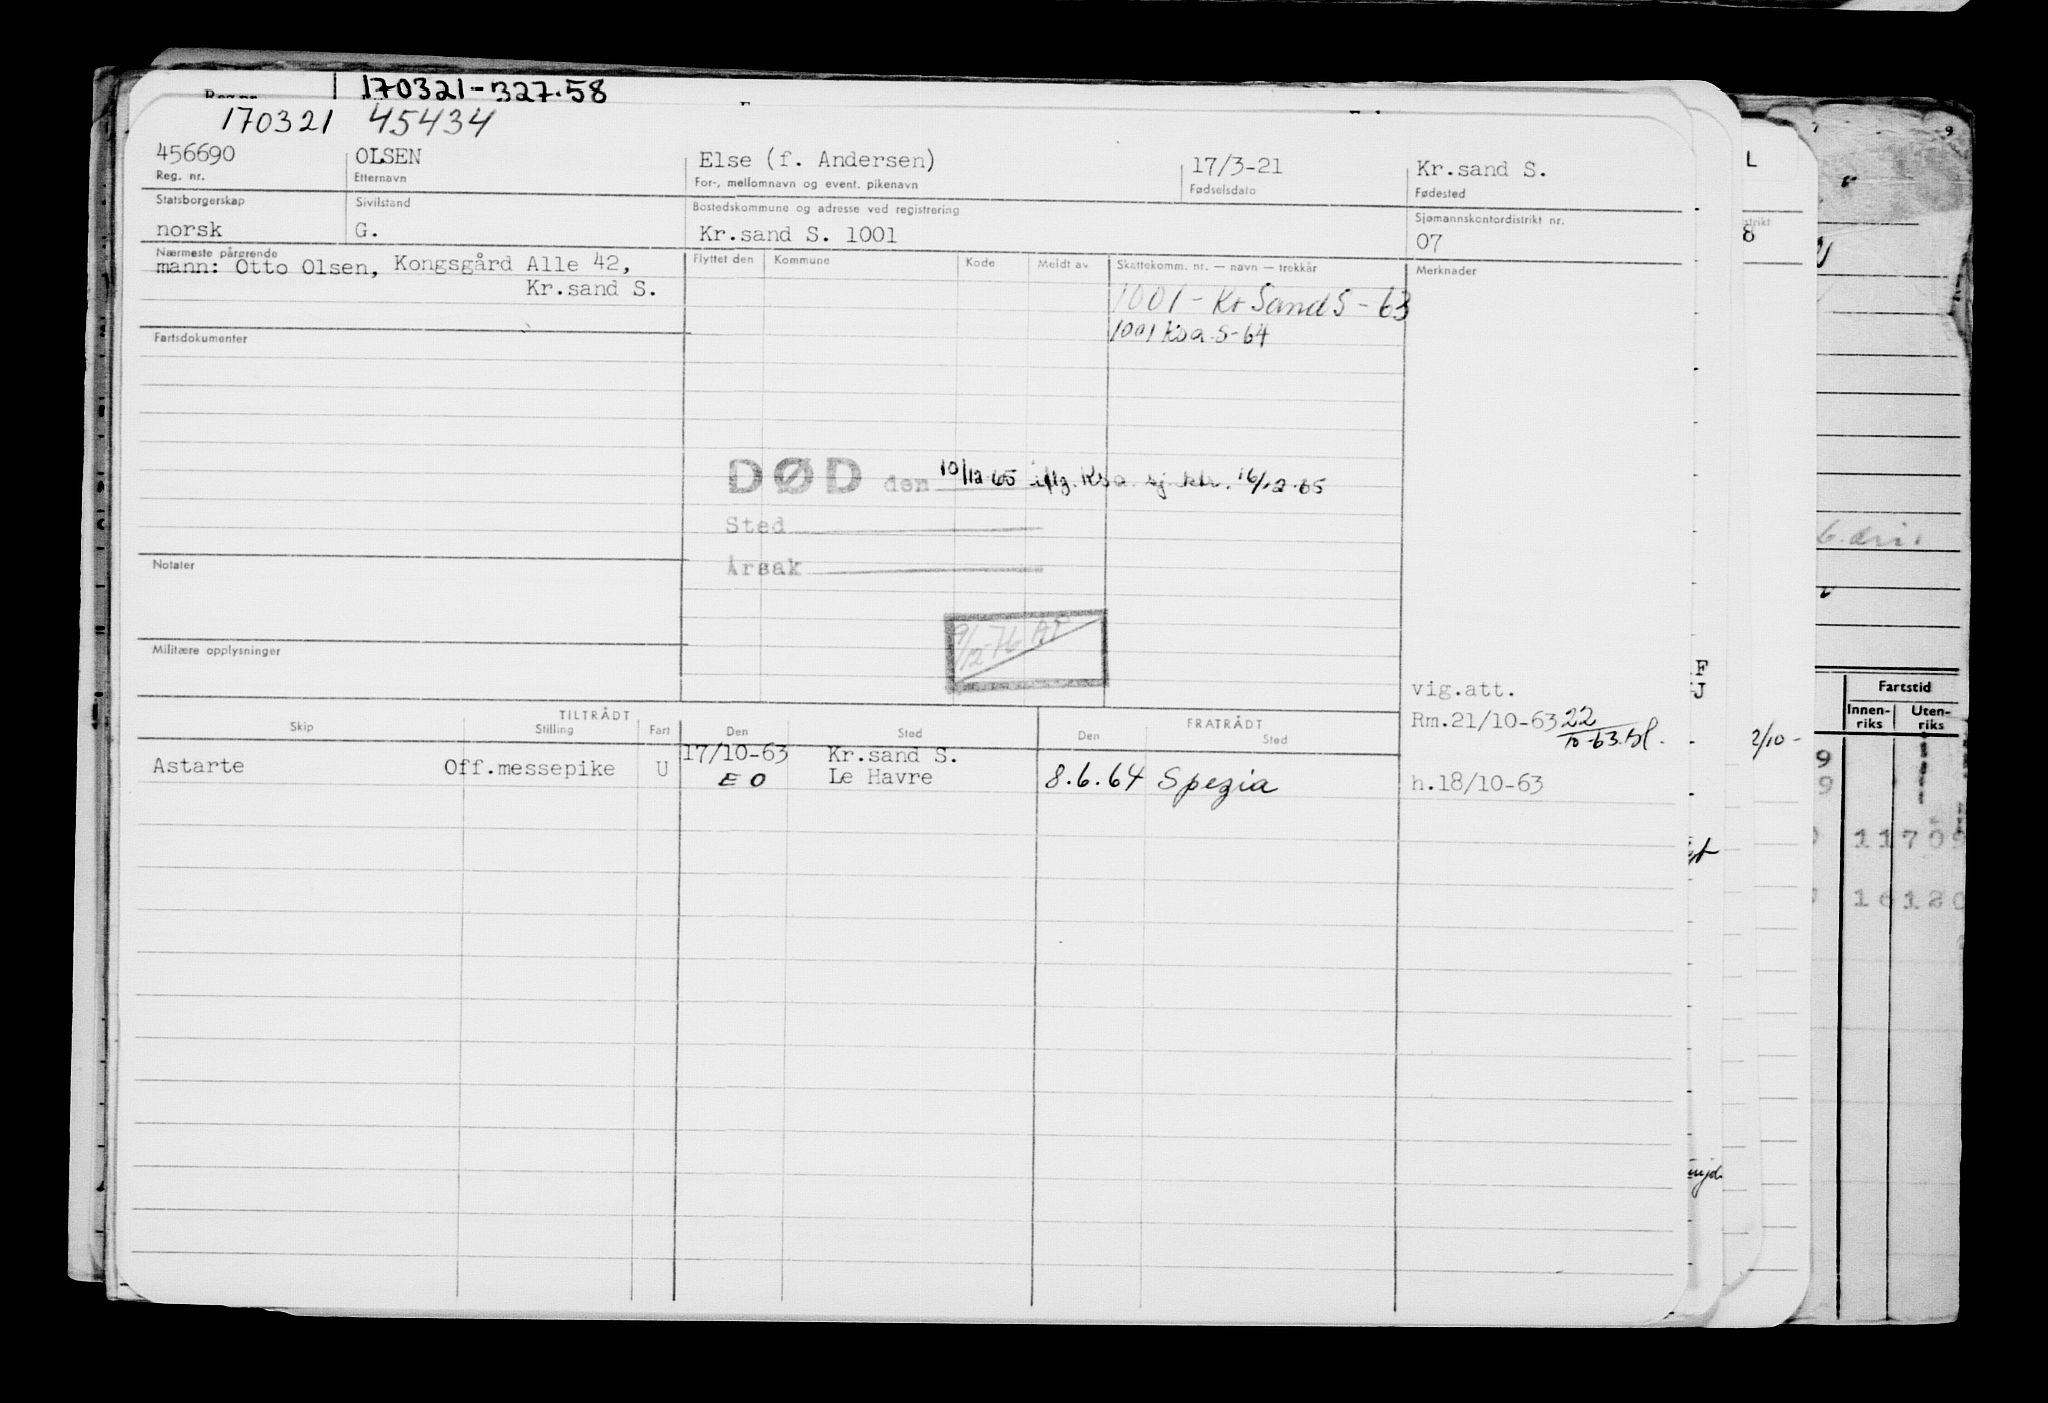 170321-327.58
170321 45434
456690 OLSEN Else (f. Andersen) 17/3-21 Kr.sand S.
Reg. nr. Etternavn For-, mellomnavn og event. pikenavn Fødselsdato Fødested
Statsborgerskap Sivilstand Bostedskommune og adresse ved registrering Sjømannskontordistrikt nr.
norsk G. Kr.sand S. 1001 07
Nærmeste pårørende Flyttet den Kommune Kode Meldt av Skattekomm. nr. — navn — trekkår Merknader
mann: Otto Olsen, Kongsgård Alle 42,
Kr.sand S.
1001 - Kr Sand S - 63
1001 Ksa. S-64
Fartsdokumenter
DØD den 10/12-65 iflg. Ksa. sj.ktr. 16/12-65
Sted
Årsak
Notater
9/12-76
Militære opplysninger
vig.att.
Rm.21/10-63 22/10-63
TILTRÅDT FRATRÅDT
Skip Stilling Fart Den Sted Den Sted
17/10-63 Kr.sand S.
Astarte Off.messepike U EO Le Havre 8.6.64 Spezia h.18/10-63
L
8
F
J
2/10-
Fartstid
Innen-riks Uten-riks
9
9